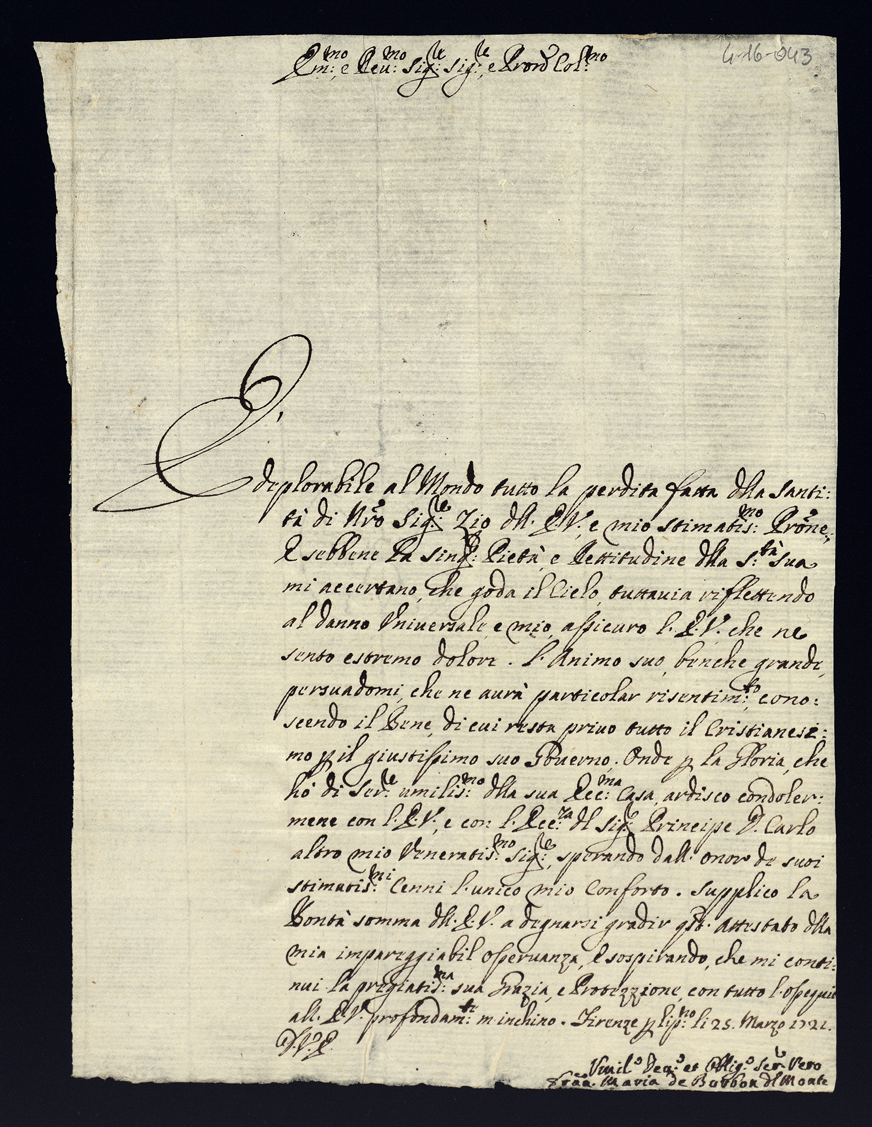 4-16-043
Em:mo e Reu:mo Sig:re Sig:re, e Prone Col:mo
E'
deplorabile al Mondo tutto la perdita fatta dlla Santi:
tà di Nr̃o Sig:re Zio dll. E.V., e mio stimatis:mo Prõne,
E sebbene la sing: Pietà, e Rettitudine dlla S:tà sua
mi accertano, che goda il Cielo, tuttavia riflettendo
al danno Vniversale, e mio, assicuro l. E.V. che ne
sento estremo dolore. L'Animo suo, benche grande,
persuadomi, che ne aurà particolar risentim:to, cono:
scendo il Bene, di cui resta priuo tutto il Cristianesi:
mo p il giustissimo suo Gouerno. Onde p la Gloria, che
hò di Ser:re umilis:mo dlla sua Ecc:ma Casa, ardisco condoler:
mene con l. E.V., e con l. Ecc:za dl Sig:re Principe D. Carlo
altro mio Veneratis:mo Sig:re, sperando dall. onor de suoi
stimatis:mi Cenni l'unico mio Conforto. Supplico la
Bontà somma dll. E.V. a degnarsi gradir qsto attestato dlla
mia impareggiabil osseruanza, E sospirando, che mi conti:
nui la pregiatis:ma sua Grazia, e Protezzione, con tutto l'ossequio
all. E.V. profondam:te m'inchino. Firenze li 25. Marzo 1721.
D.V.E.
Vmil:o Deu:o et Oblig:o Ser:e Vero
Maria de Borbon dl Monte